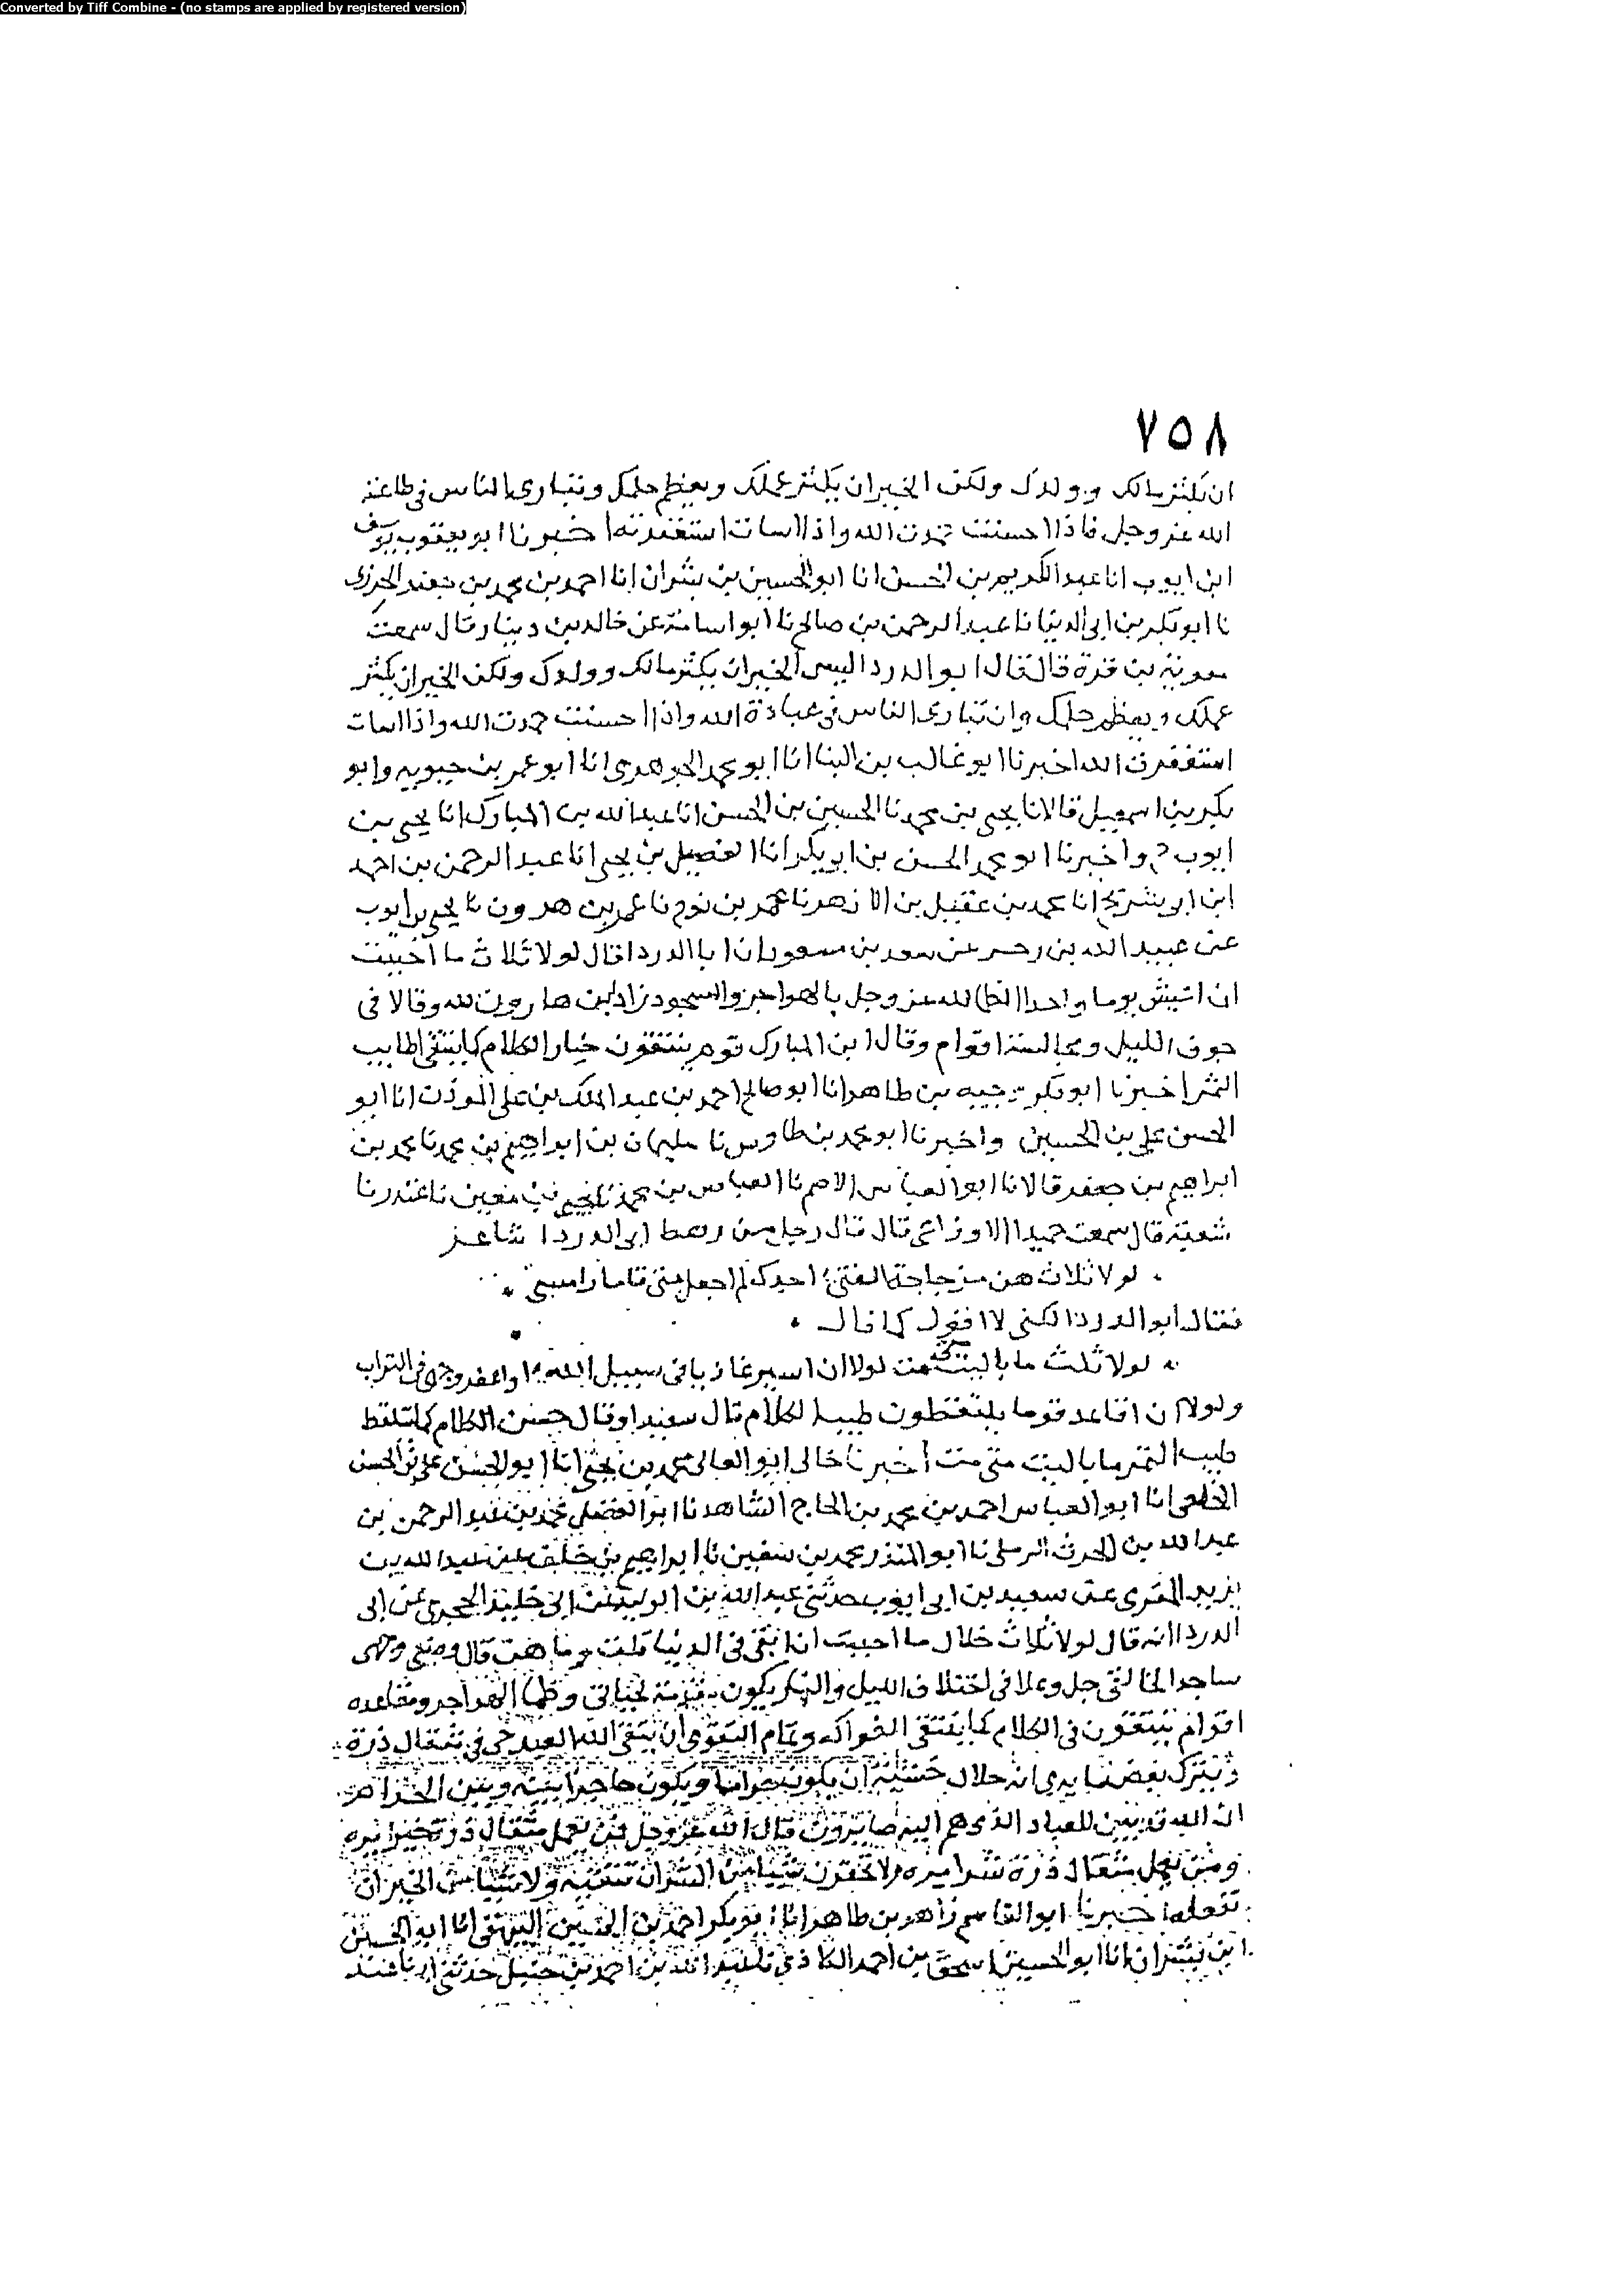 Converted by Tiff Combine - (no stamps are applied by registered version)
٧٥٨
ان يكثر مالك وولدك ولكن الخير ان يكثر عملك ويعظم حلمك وتباري الناس في طاعة
الله عز وجل فاذا احسنت حمدت الله واذا اسات استغفرته اخبرنا ابو يعقوب يوسف
ابن ايوب انا عبد الكريم بن الحسن انا ابو الحسين بن بشران انا احمد بن محمد بن جعفر الجوزي
نا ابو بكر بن ابي الدنيا نا عبد الرحمن بن صالح نا ابو اسامة عن خالد بن دينار قال سمعت
معوية بن قرة قال قال ابو الدردا ليس الخير ان يكثر مالك وولدك ولكن الخير ان يكثر
عملك ويعظم حلمك وان تباري الناس في عبادة الله واذا احسنت حمدت الله واذا اسات
استغفرت الله اخبرنا ابو غالب بن البنا انا ابو محمد الجوهري انا ابو عمر بن حيويه وابو
بكر بن اسمعيل قالا نا يحيى بن محمد نا الحسين بن الحسن انا عبد الله بن المبارك انا يحيى بن
ايوب ح واخبرنا ابو محمد الحسن بن ابو بكر انا الفضيل بن يحيى انا عبد الرحمن بن احمد
ابن ابو شريح انا محمد بن عقيل بن الازهر نا عمر بن نوح نا عمر بن هرون نا يحيى بن ايوب
عن عبيد الله بن زحر عن سعد بن مسعود ان ابا الدردا قال لولا ثلاث ما احببت
ان اعيش يوما واحدا الظما لله عز وجل بالهواجر والسجود زاد ابن هارون لله وقالا في
جوف الليل ومجالسة اقوام وقال ابن المبارك قوم ينتقون خيار الكلام كما ينتقى اطايب
الثمر اخبرنا ابو بكر وجيه بن طاهر انا ابو صالح احمد بن عبد الملك بن علي الموذن انا ابو
الحسن علي بن الحسين واخبرنا ابو محمد بن طاوس نا سليمان بن ابراهيم بن محمد نا محمد بن
ابراهيم بن جعفر قالا نا ابو العباس الاصم نا العباس بن محمد نا يحيى بن معين نا غندر نا
شعبة قال سمعت حميدا الاوزاعي قال قال رجل من رهط ابي الدردا شاعر
لولا ثلاث هن من حاجة الفتى احيدك لم احفل متى قام رامسي
فقال ابو الدردا لكني لا اقول كما قال
لولا ثلث ما باليت متى مت لولا ان اسير غازيا في سبيل الله او اعفر وجهي في التراب
ولولا ان اقاعد قوما يلتقطون طيب الكلام قال سعيد او قال حسن الكلام كما يلتقط
طيب التمر ما باليت متى مت اخبرنا خالي ابو المعالي محمد بن يحيى انا ابو الحسن علي بن الحسن
الخلعي انا ابو العباس احمد بن محمد بن الحاج الشاهد نا ابو الفضل محمد بن عبد الرحمن بن
عبد الله بن الحرث الرملي نا ابو المنذر محمد بن سفين نا ابراهيم بن خلف عن عبد الله بن
يزيد المقري عن سعيد بن ابي ايوب حدثني عبد الله بن الوليد عن ابي خليد الحجري عن ابي
الدردا انه قال لولا ثلاث خلال ما احببت ان ابقى في الدنيا قلت وما هن قال وضعي وجهي
ساجدا لخالقي جل وعلا في اختلاف الليل والنهار يكون تقدمة لحياتي وظما الهواجر ومقاعده
اقوام ينتقون في الكلام كما ينتقى الفواكه وتمام التقوى ان يتقي الله العبد حتى في مثقال ذرة
ويترك بعض ما يرى انه حلال خشية ان يكون حراما ويكون حاجزا بينه وبين الحرام
ان الله قد بين للعباد الذي هم اليه صايرون قال الله عز وجل فمن يعمل مثقال ذرة خيرا يره
ومن يعمل مثقال ذرة شرا يره ولا تحقرن شيا من الشر ان تتقيه ولا شيا من الخير ان
تفعله اخبرنا ابو القاسم زاهر بن طاهر انا ابو بكر احمد بن الحسين البيهقي انا ابو الحسين
ابن بشران انا ابو الحسين اسحق بن احمد الكاذي نا عبد الله بن احمد بن حنبل حدثني ابي نا